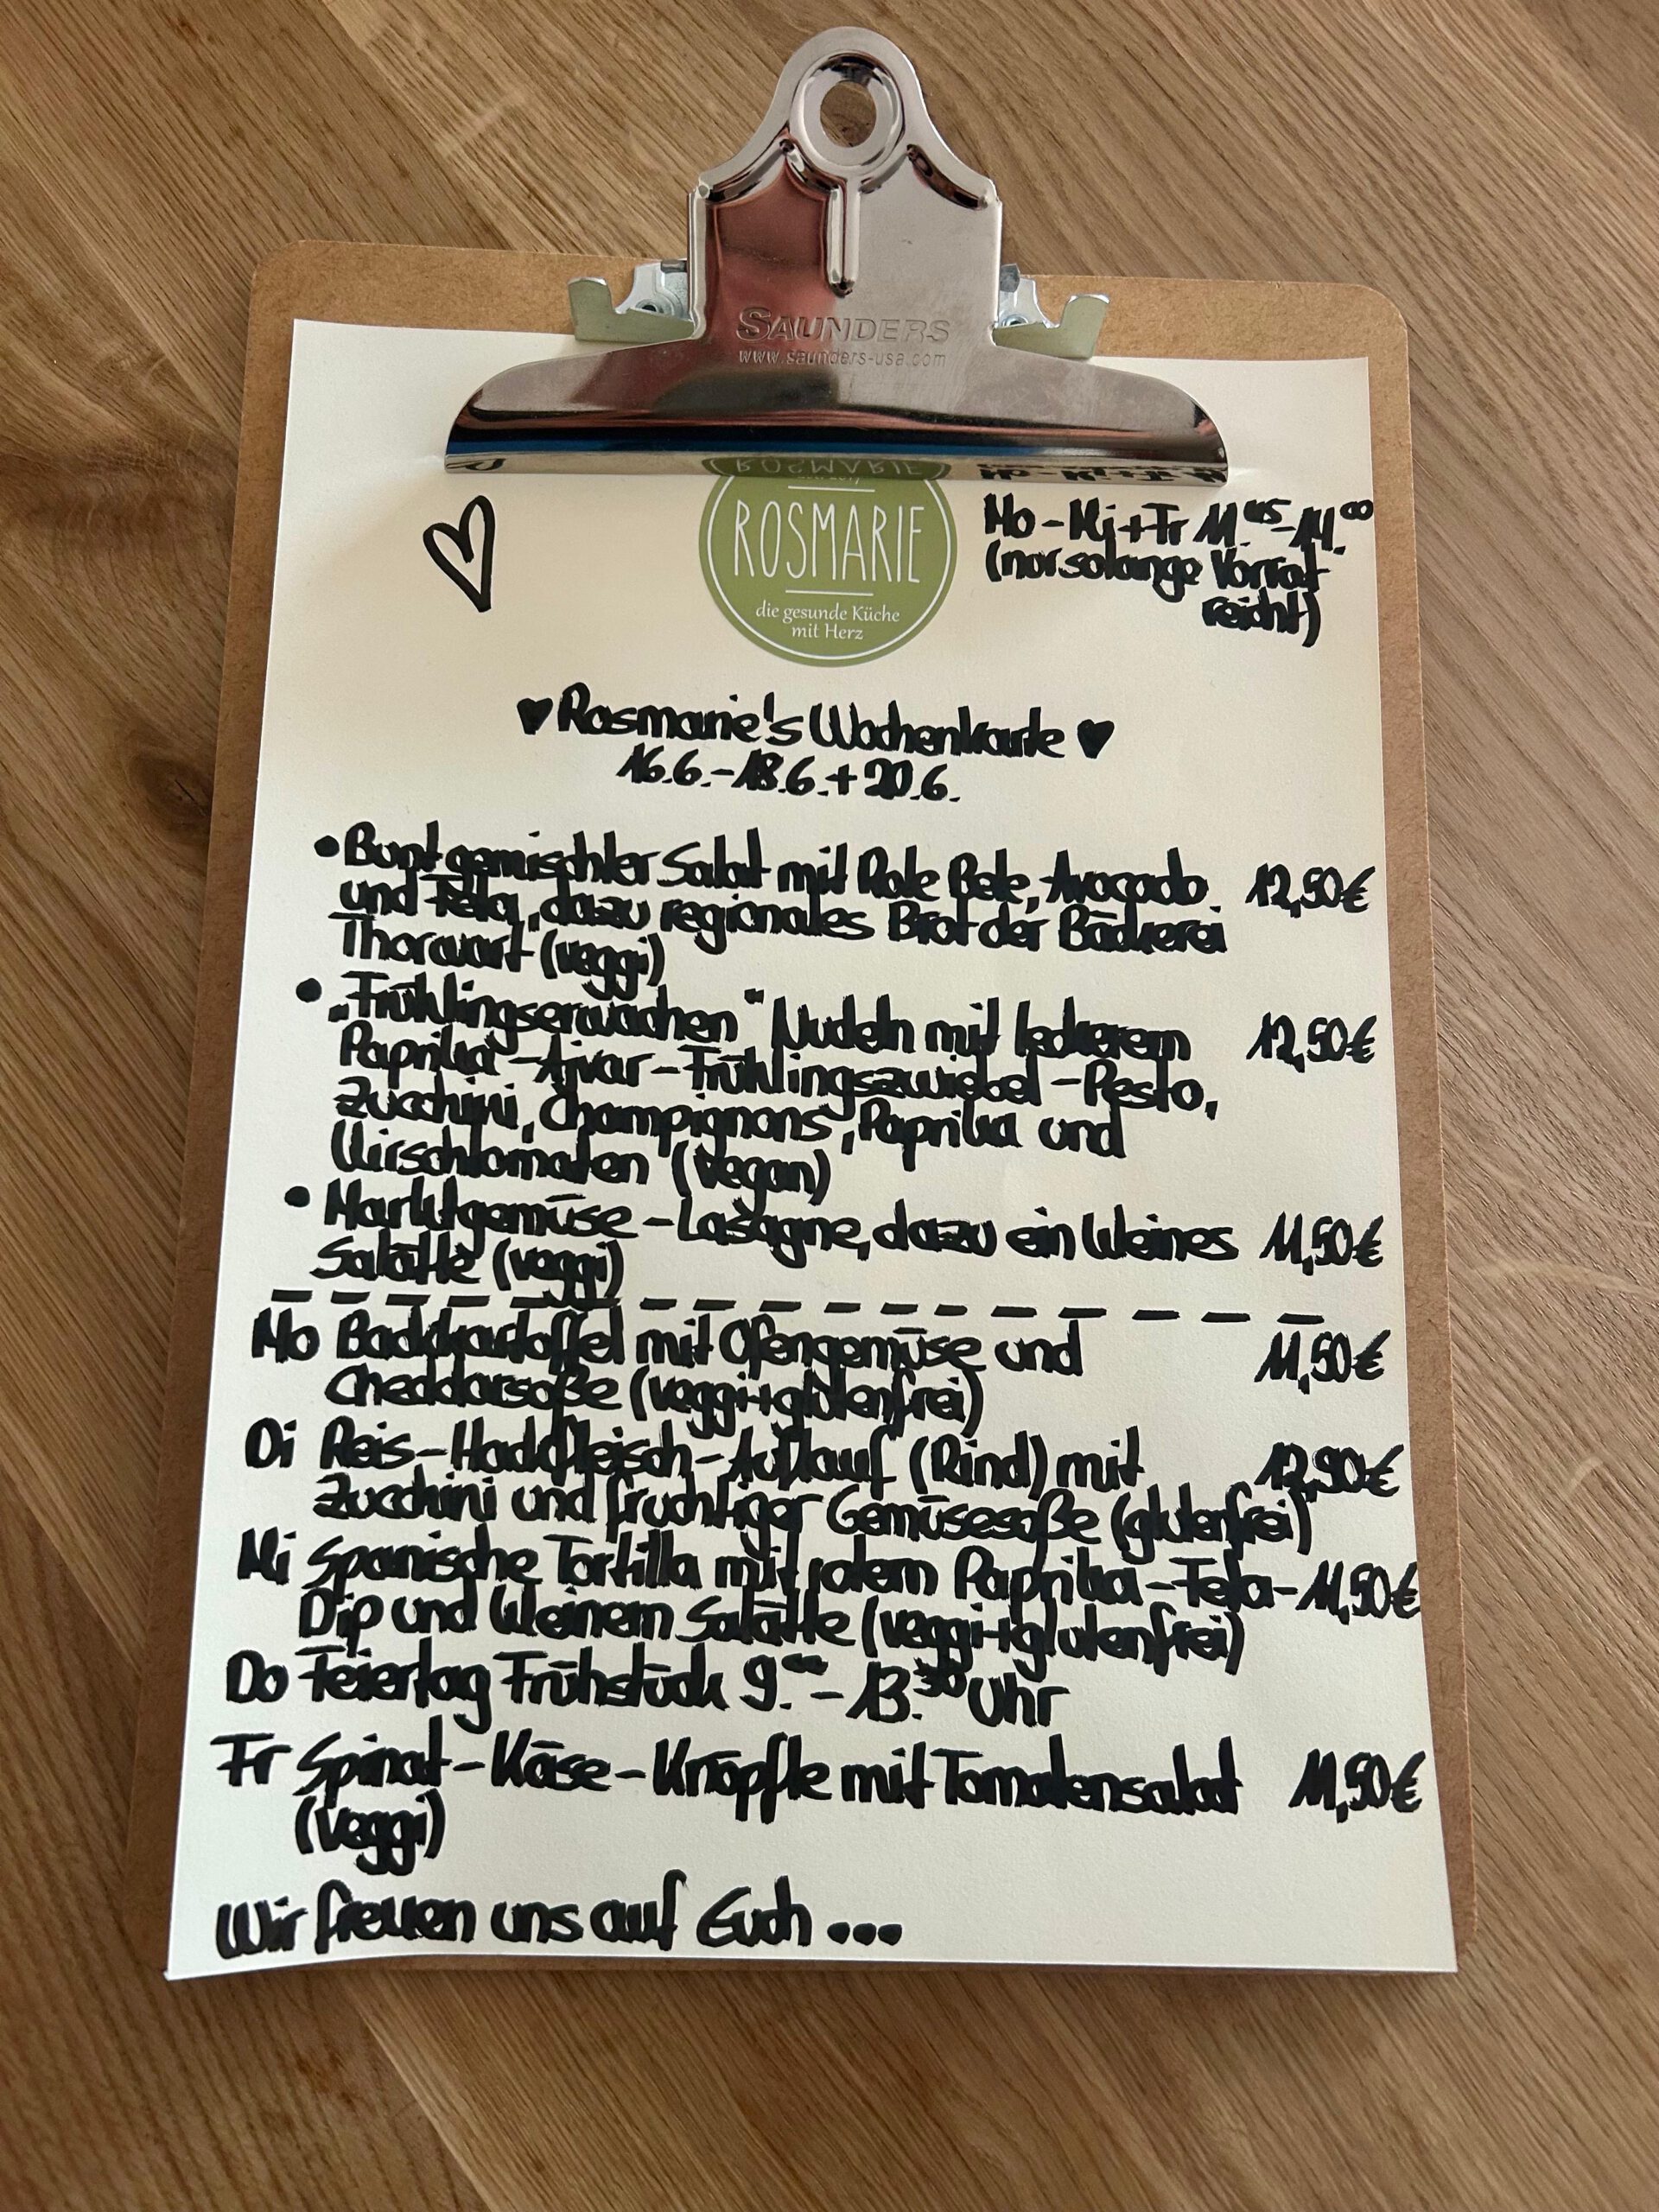 SAUNDERS
www.saunders-usa.com
ROSMARIE
die gesunde Küche
mit Herz
Mo-Mi+Fr 11⁴⁵-14.⁰⁰
(nur solange Vorrat
reicht)
♥ Rosmarie's Wochenkarte ♥
16.6.-18.6.+20.6.
• Bunt gemischter Salat mit Rote Bete, Avocado 12,50€
und Feta, dazu regionales Brot der Bäckerei
Thorwart (veggi)
• „Frühlingserwachen" Nudeln mit leckerem 12,50€
Paprika-Ajvar-Frühlingszwiebel-Pesto,
Zucchini, Champignons, Paprika und
Kirschtomaten (vegan)
• Marktgemüse-Lasagne, dazu ein kleines 11,50€
Salätle (veggi)
Mo Backkartoffel mit Ofengemüse und 11,50€
Cheddarsoße (veggi+glutenfrei)
Di Reis-Hackfleisch-Auflauf (Rind) mit 12,90€
Zucchini und fruchtiger Gemüsesoße (glutenfrei)
Mi Spanische Tortilla mit Paprika-Feta- 11,50€
Dip und kleinem Salätle (veggi+glutenfrei)
Do Feiertag Frühstück 9.⁰⁰-13.³⁰ Uhr
Fr Spinat-Käse-Knöpfle mit Tomatensalat 11,50€
(veggi)
Wir freuen uns auf Euch...